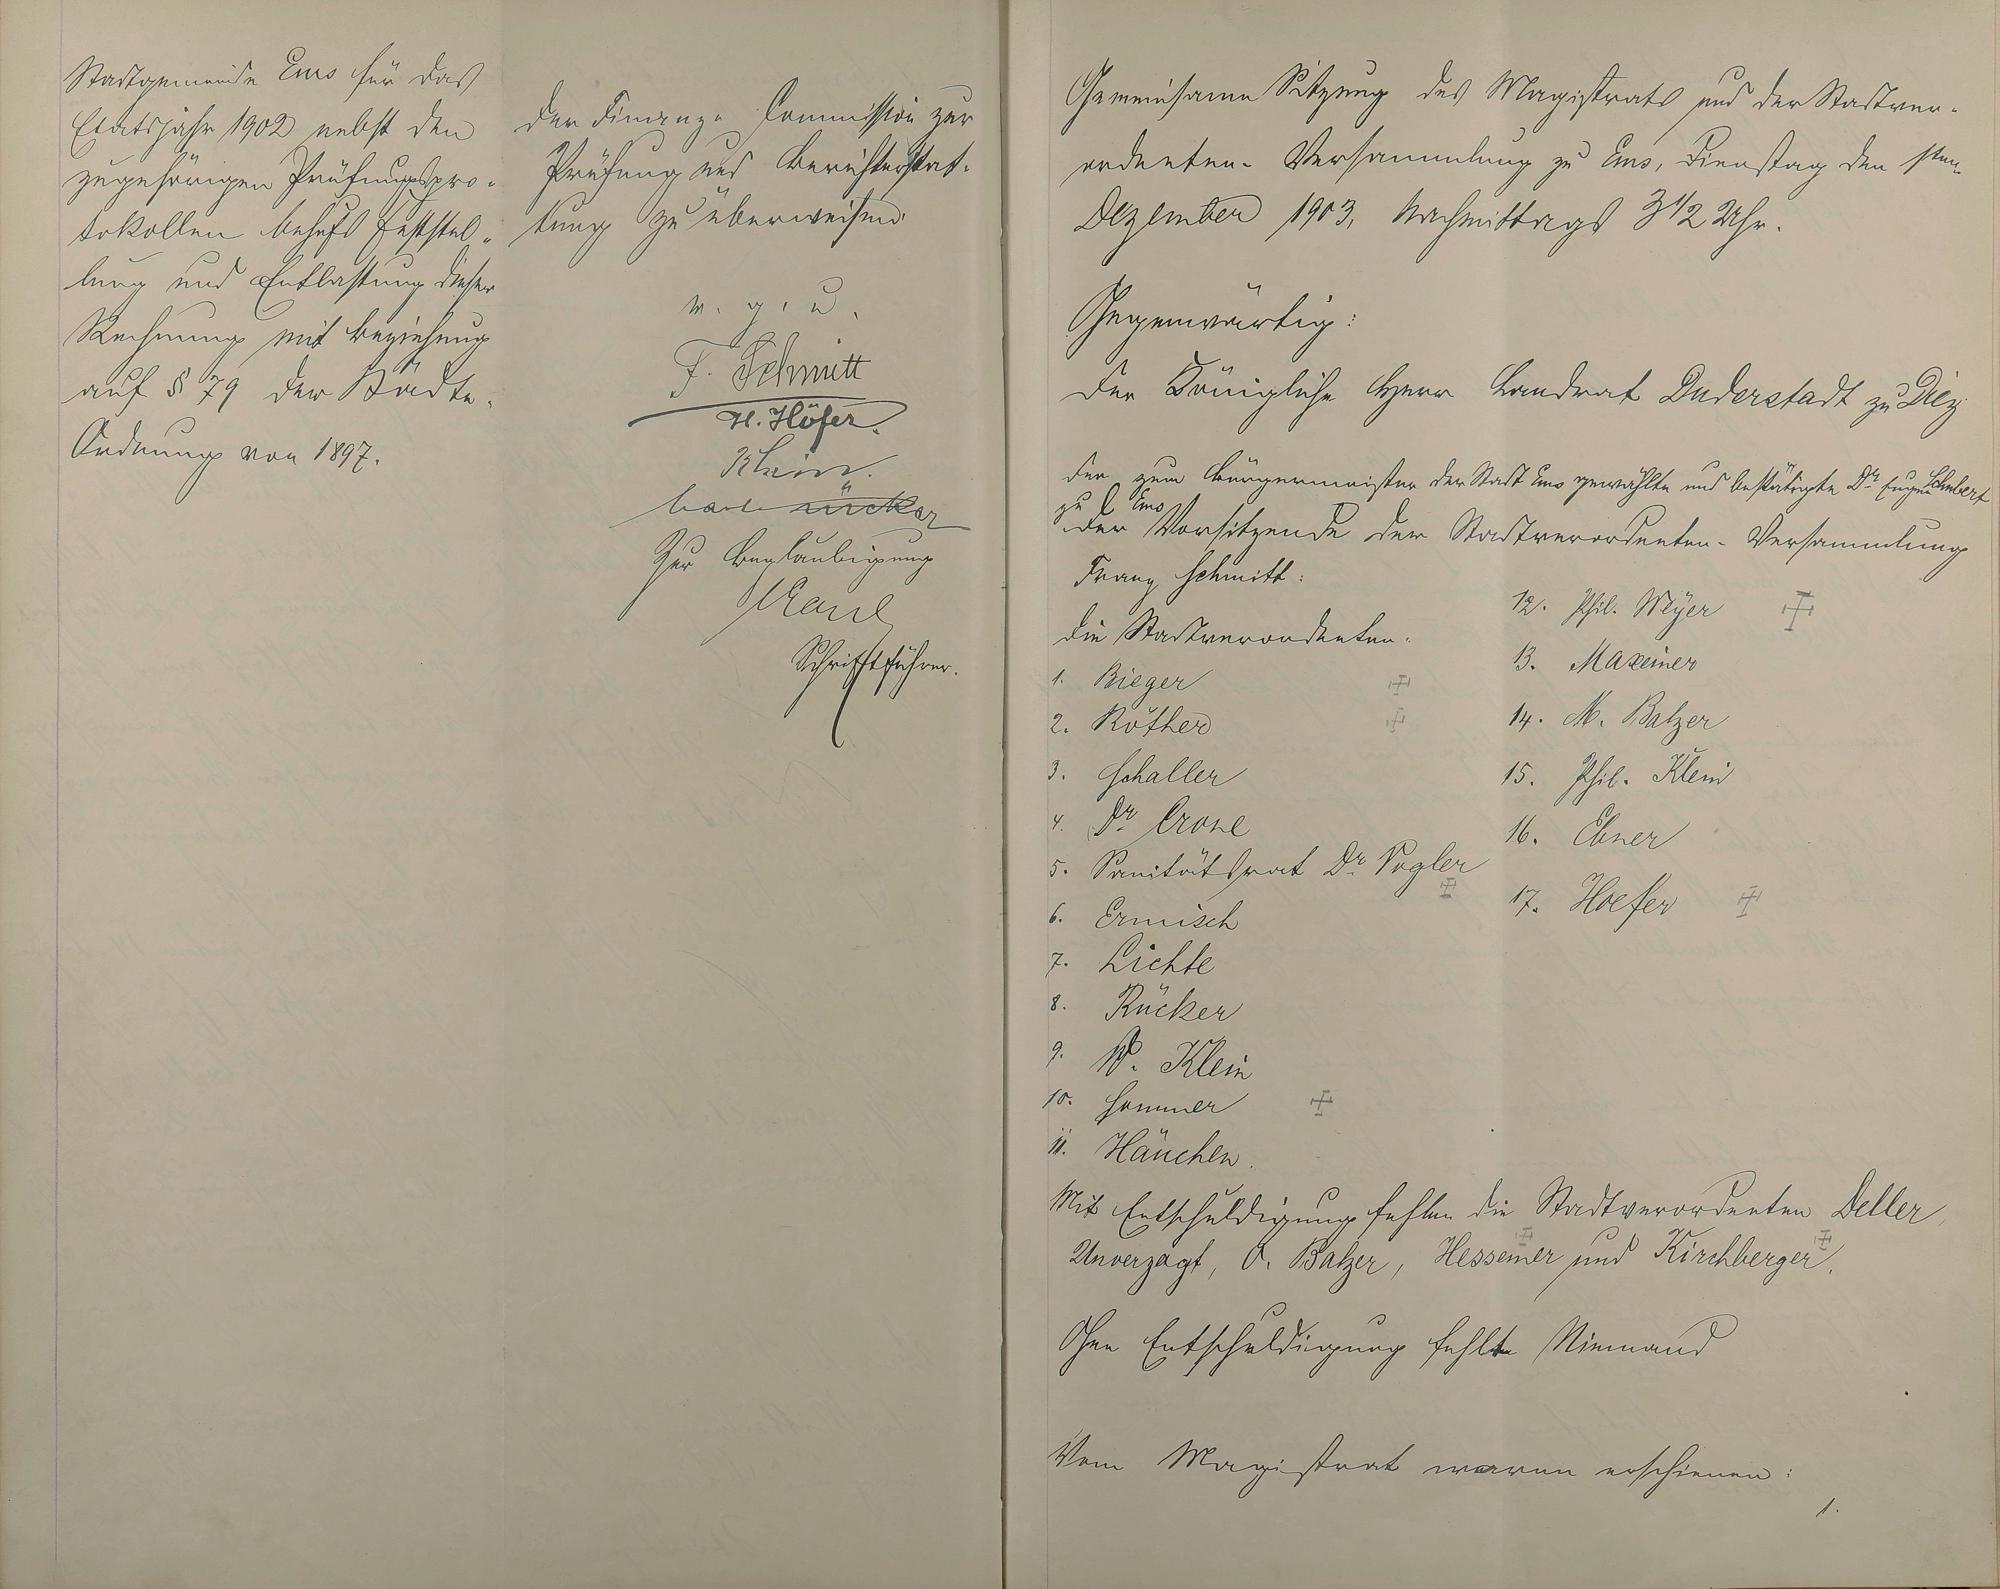 Stadtgemeinde Ems für das
Etatsjahr 1902 nebst den
zugehörigen Prüfungspro-
tokollen behufs Feststel-
lung und Entlastung dieser
Rechnung mit Beziehung
auf § 79 der Städte-
Ordnung von 1897.
der Finanz- Commission zur
Prüfung und Berichterstat-
tung zu überweisen.
v. g. u.
F. Schmitt
H. Höfer.
Klein.
Rücker
Zur Beglaubigung
Kaul
Schriftführer.
Gemeinsame Sitzung des Magistrats und der Stadtver-
ordneten- Versammlung zu Ems, Dienstag den 1ten
Dezember 1903, Nachmittags 3 1/2 Uhr.
Gegenwärtig:
Der Königliche Herr Landrat Duderstadt zu Diez
der zum Bürgermeister der Stadt Ems gewählte und bestätigte Dr. Eugen Schubert
zu Ems
der Vorsitzende der Stadtverordneten- Versammlung
Franz Schmitt:
die Stadtverordneten:
1. Bieger
2. Röther
3. Schaller
4. Dr. Crone
5. Sanitätsrat Dr. Vogler
6. Ermisch
7. Lichte
8. Rücker
9. W. Klein
10. Sommer
11. Häuchen.
12. Phil. Meyer
13. Maxeiner
14. M. Balzer
15. Phil. Klein
16. Ebner
17. Hoefer
Mit Entschuldigung fehlen die Stadtverordneten Deller,
Unverzagt, O. Balzer, Hessemer und Kirchberger.
Ohne Entschuldigung fehlte Niemand
Vom Magistrat waren erschienen:
1.